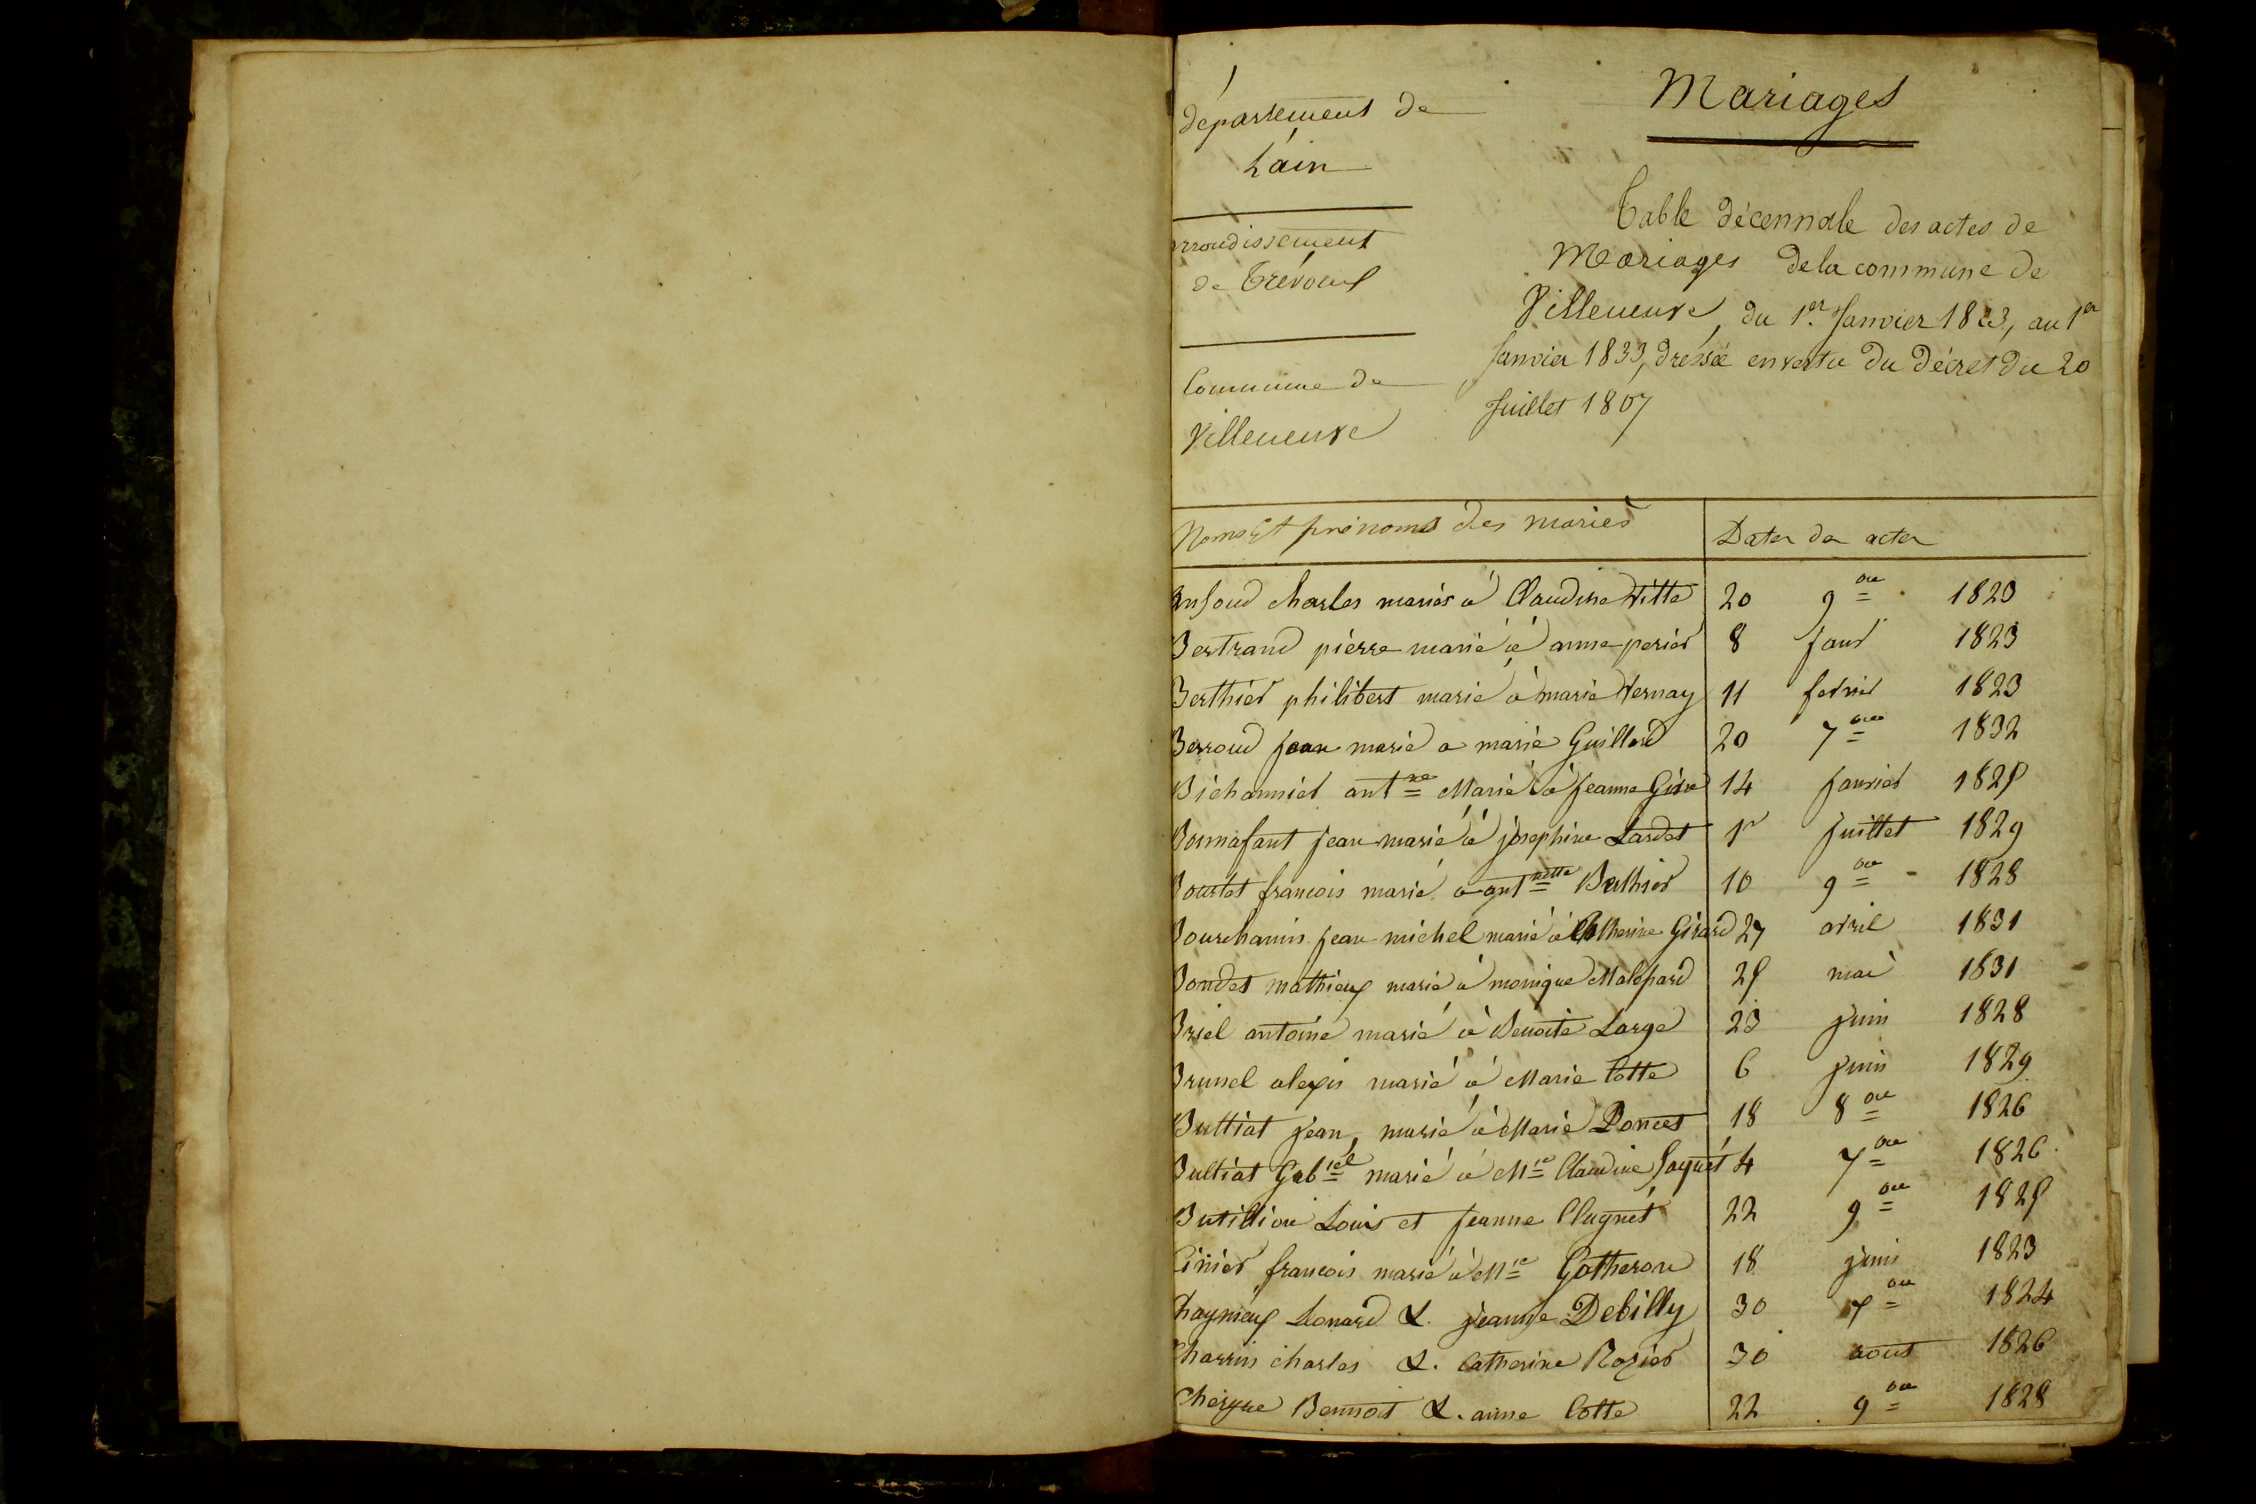 Mariages
département de
L'ain
arrondissement
de Trévoux
Commune de
Villeneuve
Table décennale des actes de
Mariages de la commune de
Villeneuve, du 1er Janvier 1823, au 1er
Janvier 1833, dressée en vertu du Décret du 20
Juillet 1807
Noms Et prénoms des mariés
Dates des actes
charles mariés à Claudine Vitte 20 9bre 1823
Bertrand pierre marié à anne perier 8 janv 1823
Berthier philibert marié à marie Vernay 11 fevrier 1823
Berroud jean marié a marie Guillard 20 7bre 1832
Bichonnier antne Marié à jeanne 14 janvier 1825
Bonnafant jean marié à josephine Lardet 1r juillet 1829
Bourlet francois marié a antnette Buthier 10 9bre 1828
Bourchanin jean michel marié à Catherine Girard 27 avril 1831
Bondet mathieux marié à monique Malépard 25 mai 1831
Briel antoine marié à Benoite Large 23 juin 1828
Brunel alexis marié à Marie Cotte 6 juin 1829
Bultiat jean, marié à Marie Poncet 18 8bre 1826
Bultiat Gabiel marié à Mie Claudine 4 7bre 1826
Butillion Louis et jeanne Clugnet 22 9bre 1825
Cinier francois marié à Mie Gotheron 18 juin 1823
Chaynieux Lonard &. jeanne Debilly 30 7bre 1824
Charrin charles &. Catherine Rozier 30 aout 1826
Bennoit &. anne Cotte 22 9bre 1828